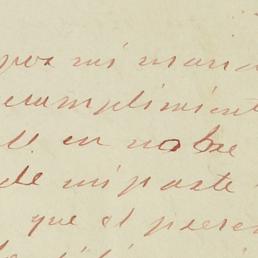 por mi
cumplimient
V. en nobre
de mi parte
que el presen